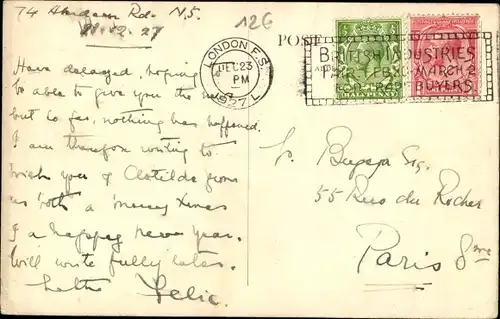 74 Rd. N.5.
12G
22.12.27
LONDON F.S.
DEC 23
PM
1927
POST
BRITISH INDUSTRIES
FEB. MARCH 2
BUYERS
Have delayed, hoping to
be able to give you the
but so far, nothing has happened.
I am therefore writing to
wish you & Clotilde from
us both a merry Xmas
& a happy new year.
Will write fully later.
Esq.
55 Rue du Rocher
Paris 8me